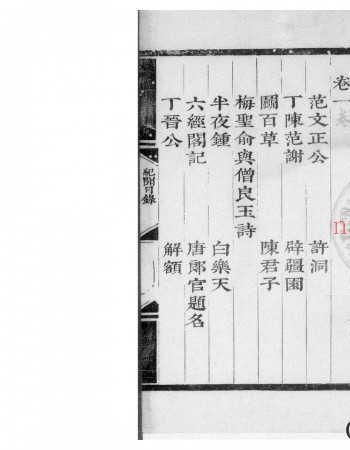 卷一
范文正公 許洞
丁陳范謝 辟疆園
鬭百草 陳君子
梅聖俞與僧良玉詩
半夜鍾 白樂天
六經閣記 唐郎官題名
丁晉公 解額
紀聞目錄